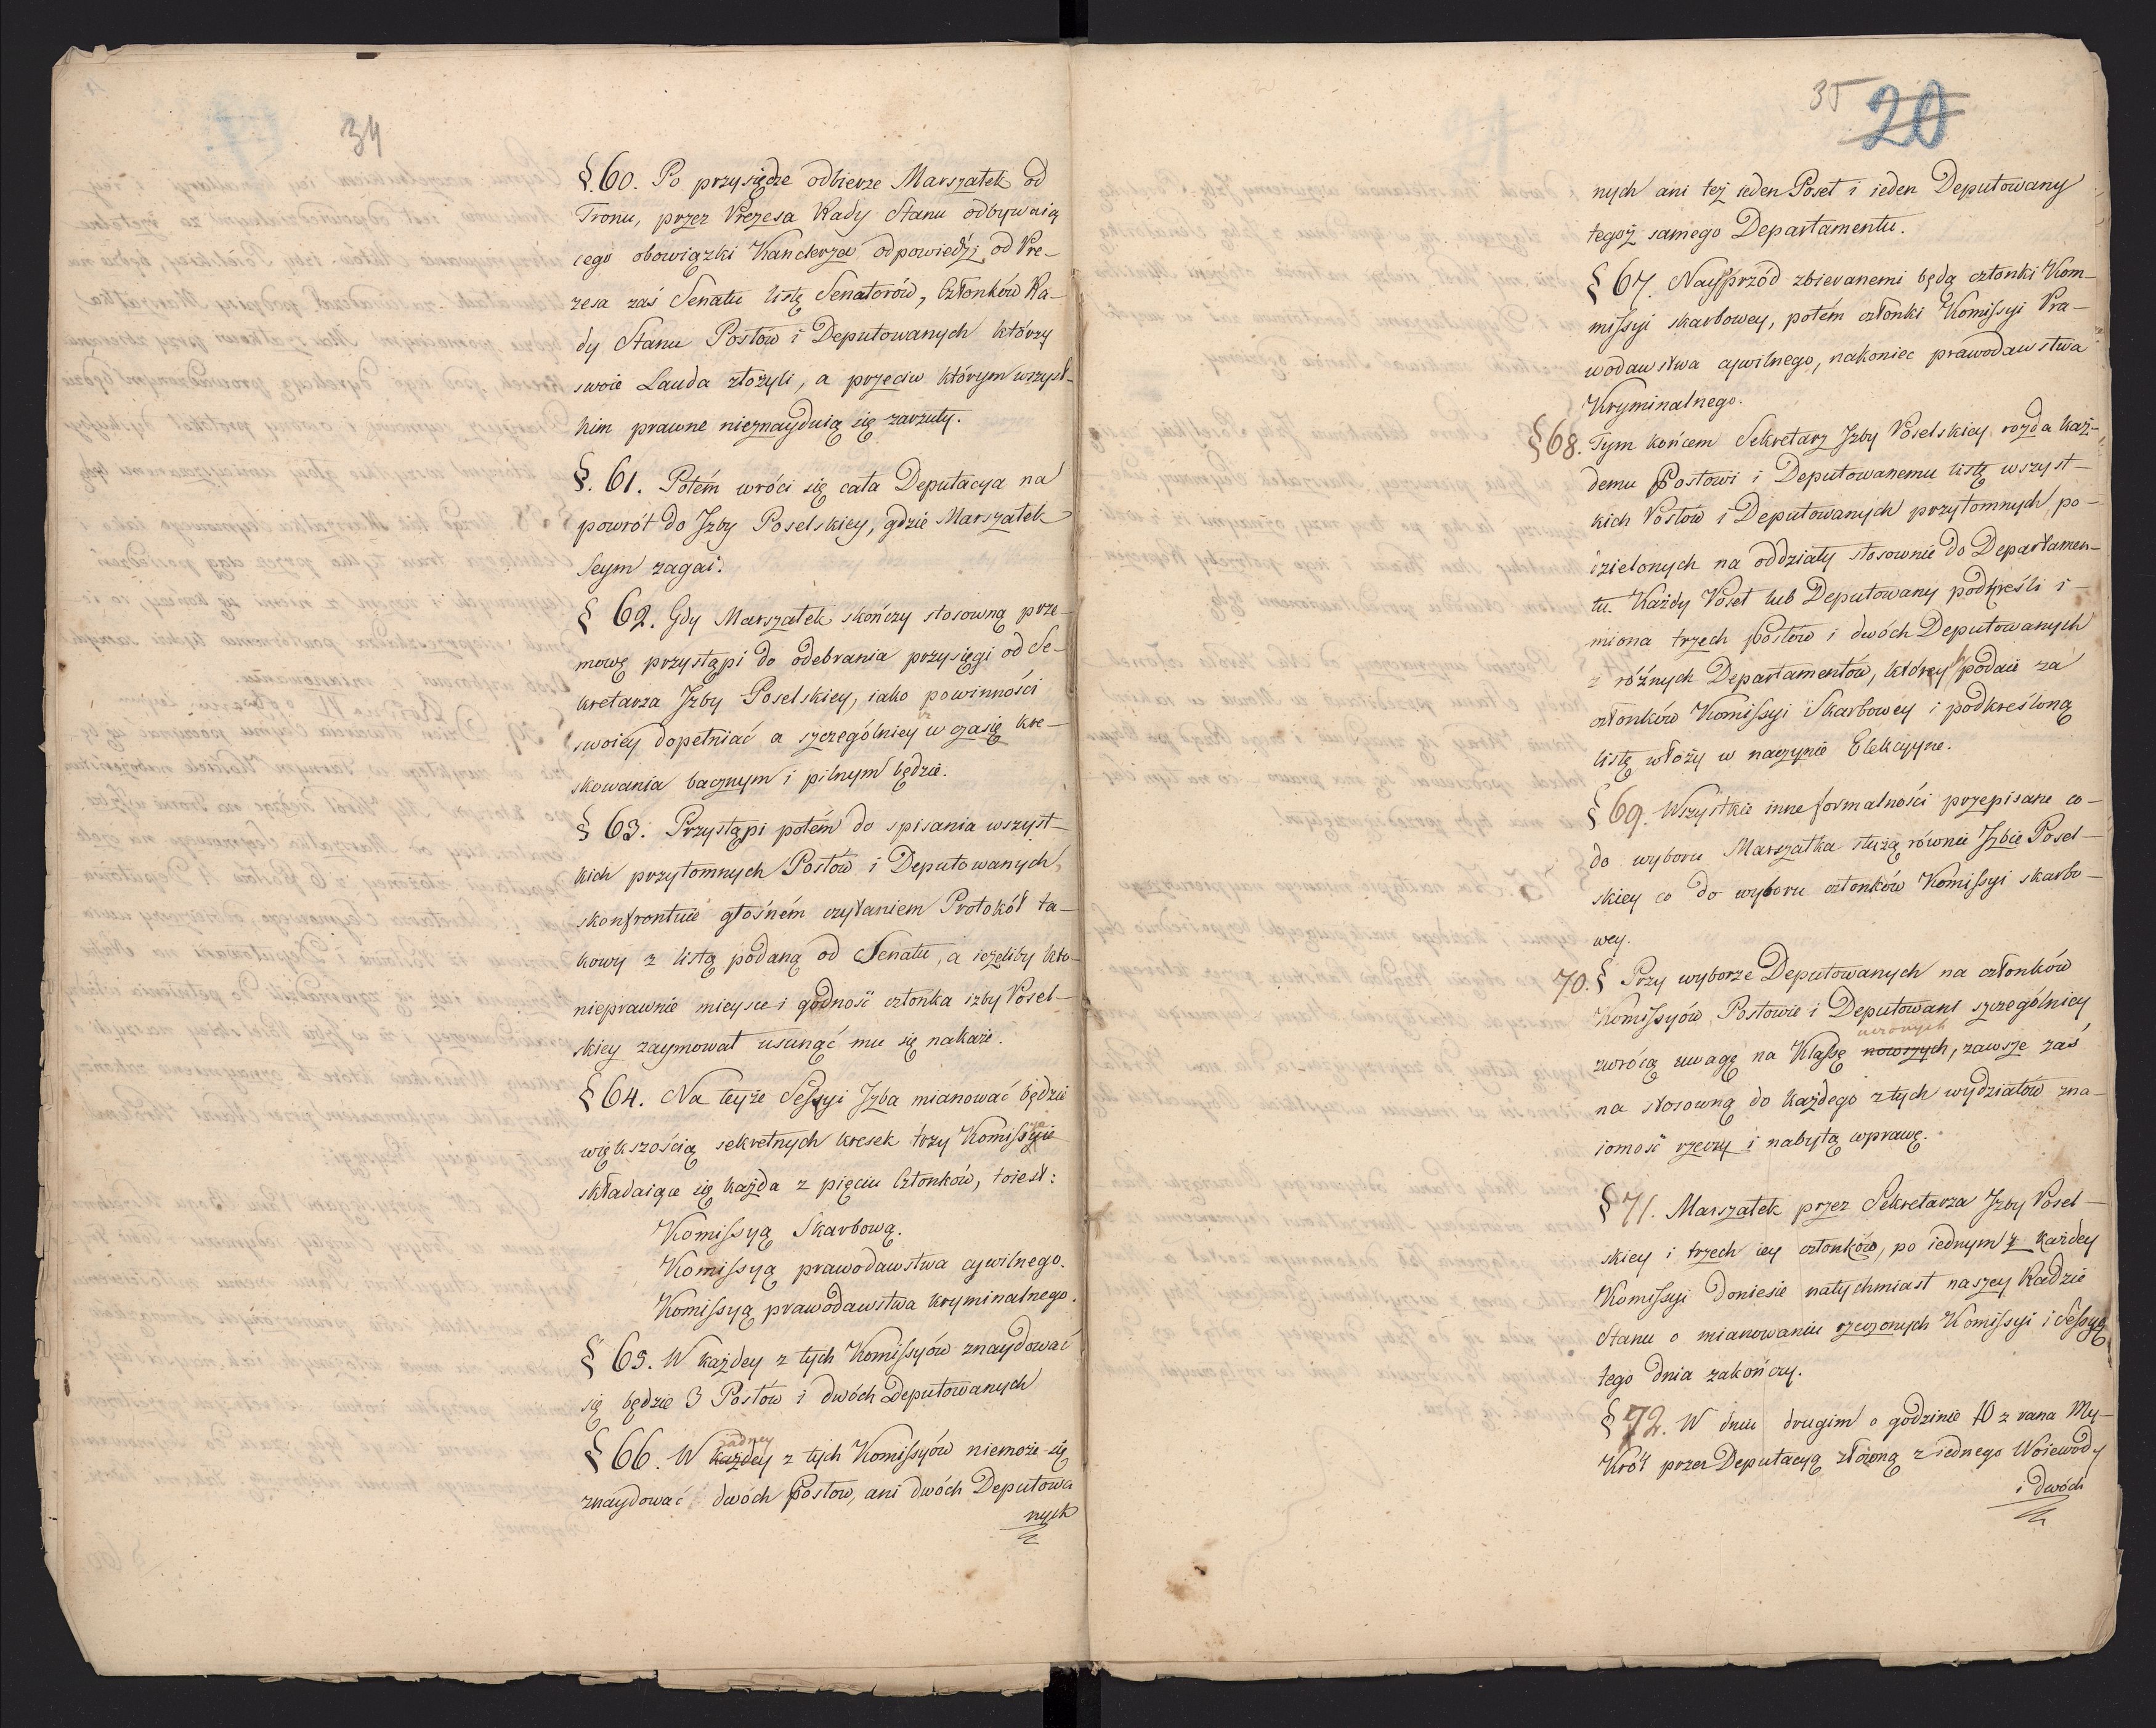 34
§. 60. Po przysiędze odbierze Marszałek od
Tronu, przez Prezesa Rady Stanu odbywaią
cego obowiązki Kanclerza odpowiedź; od Pre-
zesa zaś Senatu listę Senatorów, Członków Ra-
dy Stanu Posłów i Deputowanych którzy
swoie Lauda złożyli, a przeciw którym wszyst-
kim prawne nieznayduią się zarzuty.
§. 61. Potém wróci się cała Deputacya na
powrót do Jzby Poselskiey, gdzie Marszałek
Seym zagai.
§ 62. Gdy Marszałek skończy stosowną prze-
mowę przystąpi do odebrania przysięgi od Se-
kretarza Jzby Poselskiey, iako powinności
swoiey dopełniać a szczególniey w czasię kre-
skowania bacznym i pilnym będzie.
§ 63. Przystąpi potém do spisania wszyst-
kich przytomnych Posłów i Deputowanych,
skonfrontuie głośném czytaniem Protokół ta-
kowy z listą podaną od Senatu, a ieżeliby kto-
nieprawnie mieysce i godność członka izby Posel-
skiey zaymował usunąć mu się nakaże.
§ 64. Na teyże Sessyi Jzba mianować będzie
większością sekretnych kresek trzy Komissyie
składaiące się każda z pięciu Członków, toiest:
Komissyą Skarbową.
Komissyą prawodawstwa cywilnego.
Komissyą prawodawstwa kryminalnego.
§ 65. W każdey z tych Komissyów znaydować
się będzie 3 Posłów i dwóch Deputowanych
żadney
§ 66. W każdey z tych Komissyów niemoże się
znaydować dwóch Posłow, ani dwóch Deputowa
nych
35 20
nych ani też ieden Poseł i ieden Deputowany
tegoż samego Departamentu.
§ 67. Nayprzód zbieranemi będą członki Kom-
missyi skarbowey, potém członki Komissyi Pra-
wodawstwa cywilnego, nakoniec prawodawstwa
Kryminalnego.
§ 68. Tym końcem Sekretarz Jzby Poselskiey rozda każ-
demu Posłowi i Deputowanemu listę wszyst-
kich Posłów i Deputowanych przytomnych, po-
dzielonych na oddziały stosownie do Departamen-
tu. Każdy Poseł lub Deputowany podkreśli i-
miona trzech Posłów i dwóch Deputowanych
z różnych Departamentów, których podaie za
członków Komissyi Skarbowey i podkreśloną
listę włoży w naczynie Elekcyyne.
§ 69. Wszystkie inne formalności przepisane co-
do wyboru Marszałka służą równie Jzbie Posel-
skiey co do wyboru członków Komissyi skarbo-
wey.
70. § Przy wyborze Deputowanych na członków
Komissyów, Posłowie i Deputowani szczególniey
uczonych
zwrócą uwagę na Klassę nowszych, zawsze zaś
na stosowną do każdego z tych wydziałów zna-
iomość rzeczy i nabytą wprawę.
§ 71. Marszałek przez Sekretarza Jzby Posel-
skiey i trzech iey członków, po iednym z każdey
Komissyi doniesie natychmiast naszey Radzie
Stanu o mianowaniu rzeczonych Komissyi i Sessyą
tego dnia zakończy.
§ 72. W dniu drugim o godzinie 10 z rana My-
Król przez Deputacyą złożoną z iednego Woiewody
i dwóch